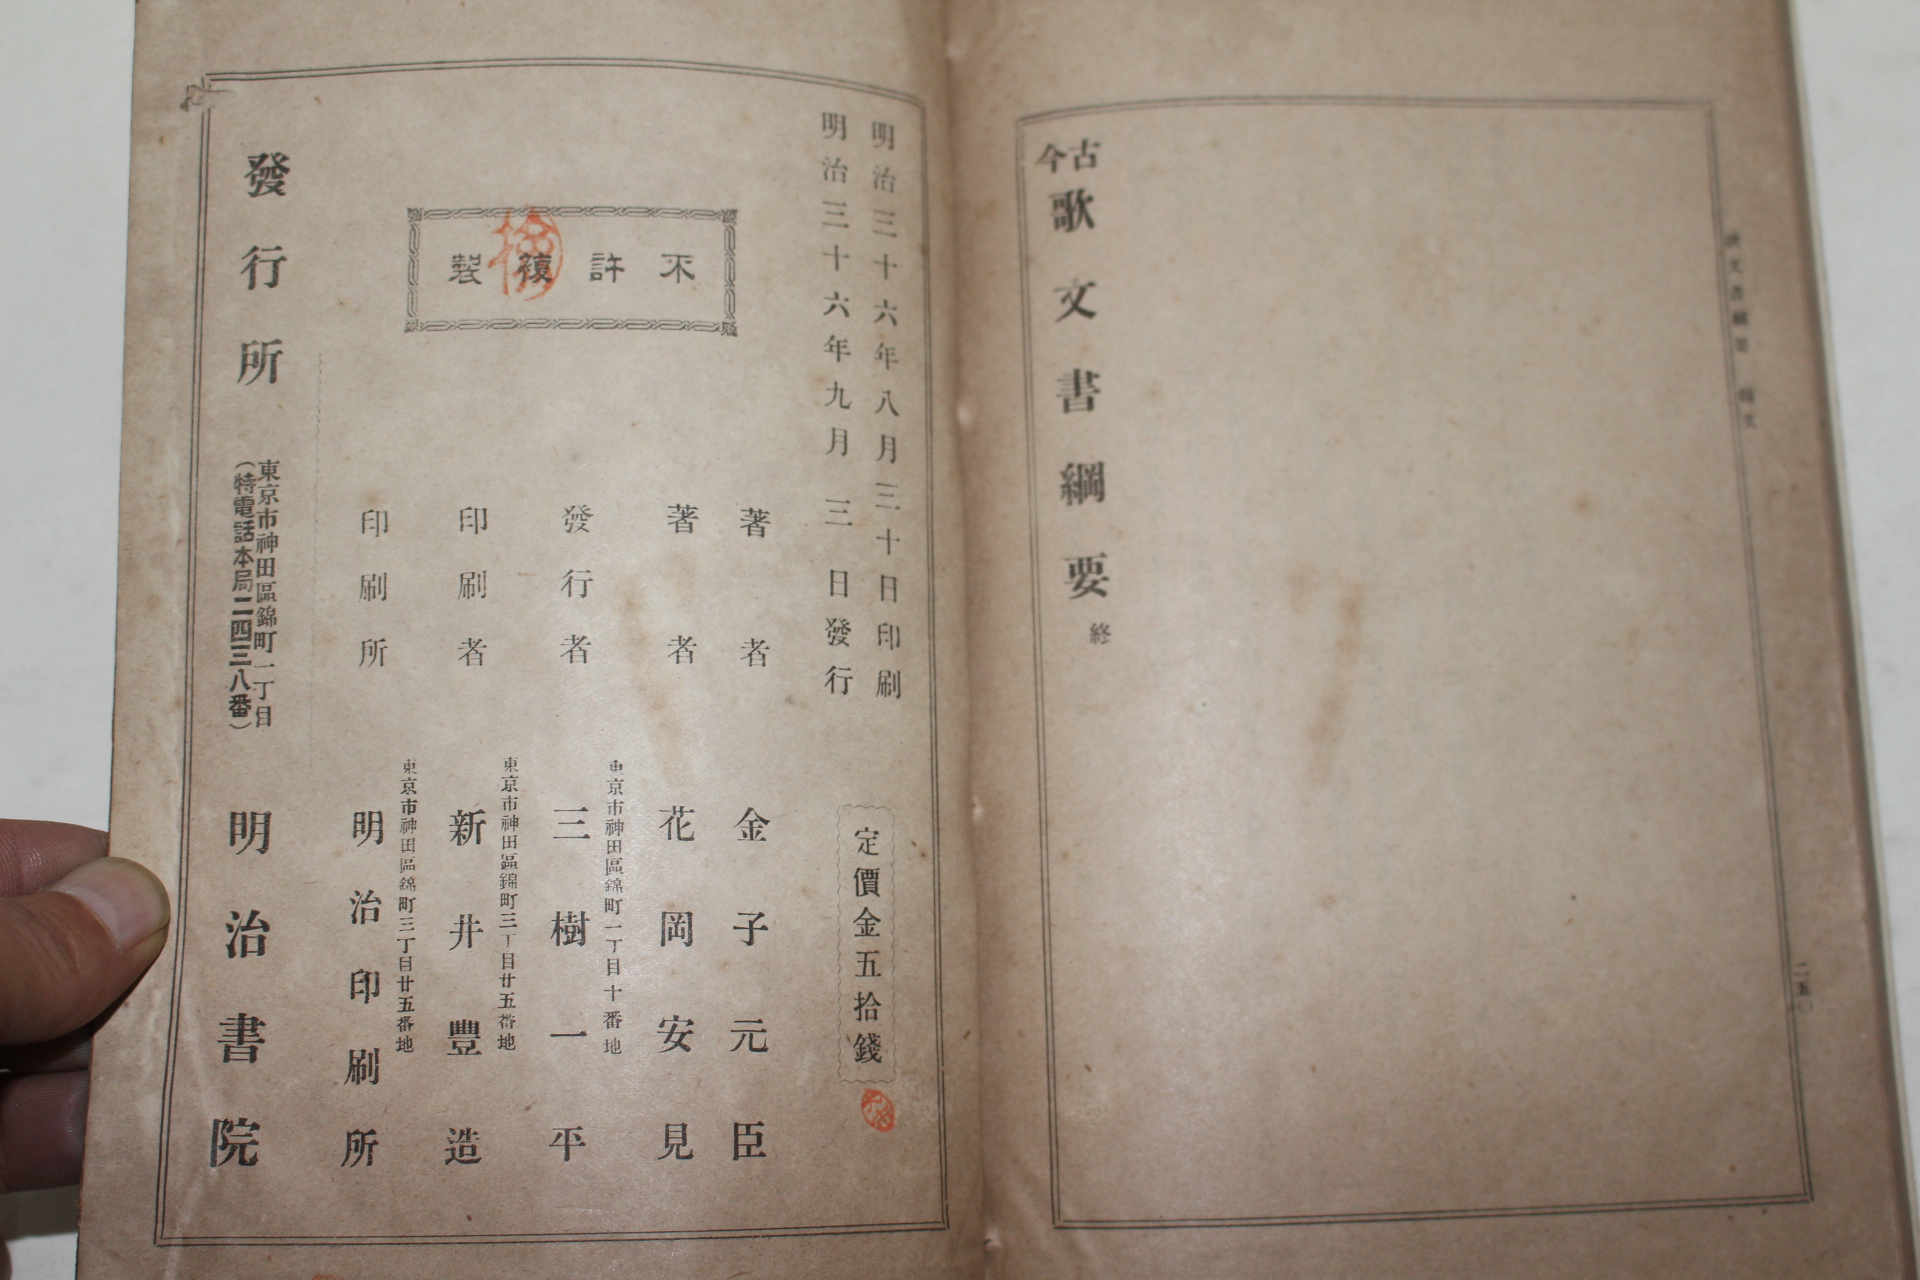 古今歌文書綱要終
二五〇
明治三十六年八月三十日印刷
明治三十六年九月三日發行
定價金五拾錢
不許複製
著者 金子元臣
著者 花岡安見
東京市神田區錦町一丁目十番地
發行者 三樹一平
東京市神田區錦町三丁目廿五番地
印刷者 新井豐造
東京市神田區錦町三丁目廿五番地
印刷所 明治印刷所
發行所
東京市神田區錦町一丁目
（特電話本局二四三八番）
明治書院